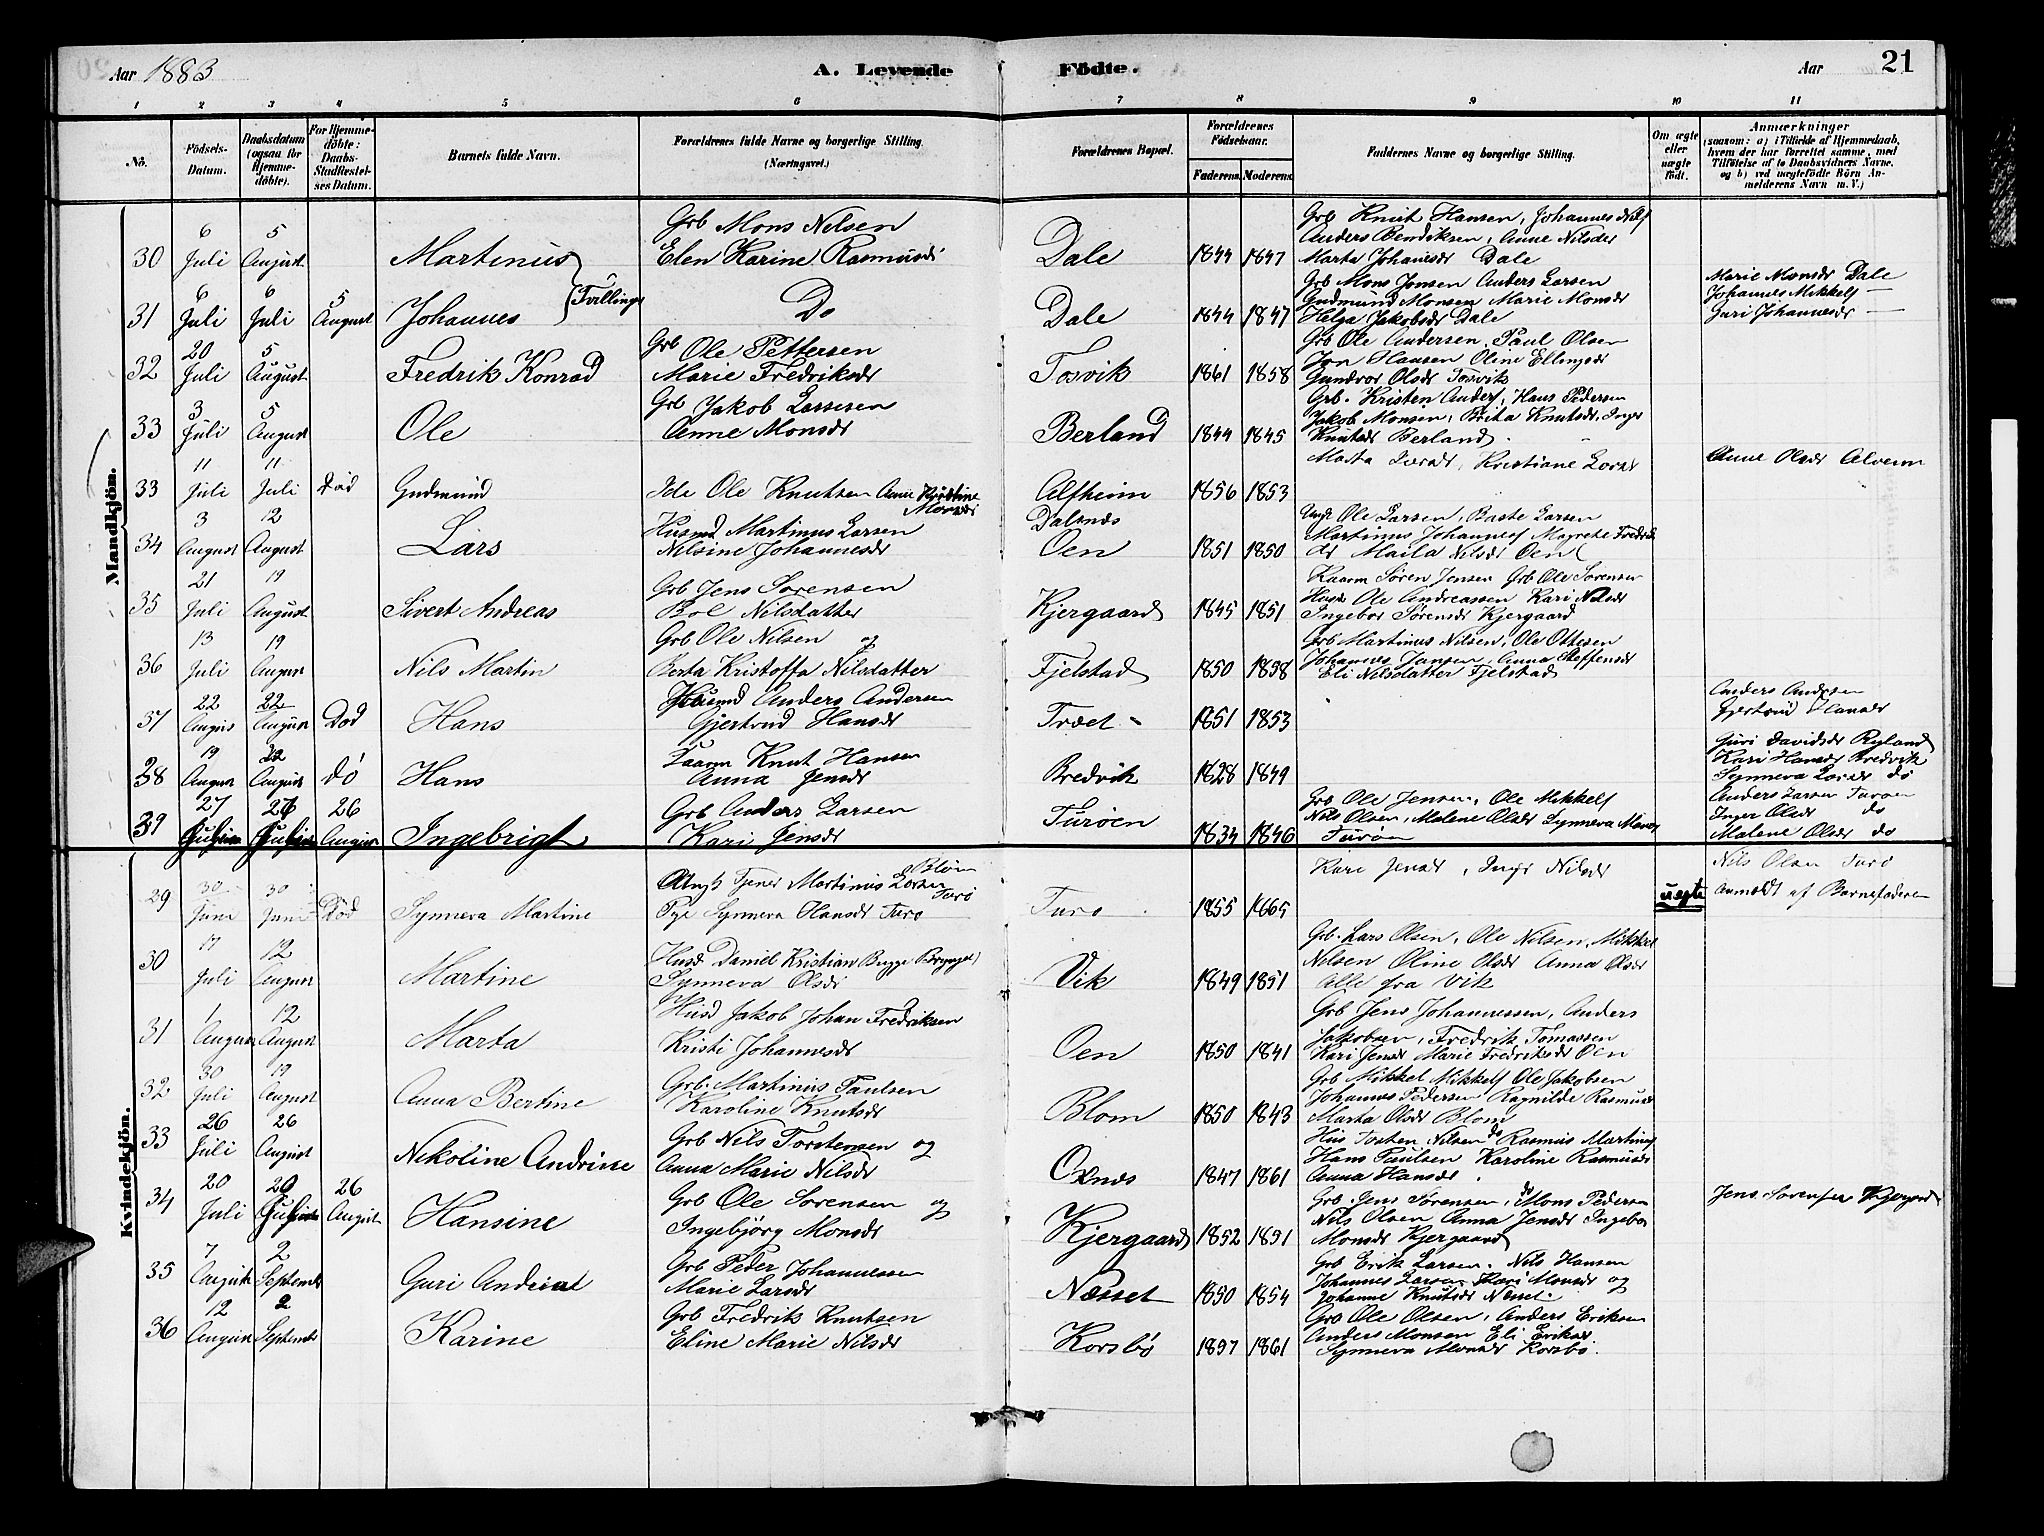 Aar 1883
A. Levende
Födte.
Aar
21
1 2 3 4 5 6 7 8 9 10 11
No.
Födsels-Datum.
Daabsdatum (ogsaa for Hjemme-döbte).
For Hjemme-döbte: Daabs-Stadfæstel-ses Datum.
Barnets fulde Navn.
Forældrenes fulde Navne og borgerlige Stilling. (Næringsvei.)
Forældrenes Bopæl.
Forældrenes Födselsaar.
Faderens. Moderens.
Faddernes Navne og borgerlige Stilling.
Om ægte eller uægte födt.
Anmærkninger
(saasom: a) i Tilfælde af Hjemmedaab,
hvem der har forrettet samme, med
Tilföielse af to Daabsvidners Navne,
og b) ved uægtefödte Börn An-
melderens Navn m. V.)
Mandkjön.
30 6 Juli 5 August Martinus
Grb Mons Nilsen
Elen Karine Rasmusdr
Dale 1844 1847
Grb Knut Hansen, Johannes Nils
Anders Bendiksen, Anne Nilsdr
Marta Johansdr Dale
31 6 Juli 6 Juli 5 August Johannes (Tvillinger
Do
Dale 1844 1847
Grb Mons Jonsen Anders Larsen
Gudmund Monsen Marie Monsdr
Helga Jakobsdr Dale
Marie Monsdr Dale
Johannes Mikkels —
Guri Johannesdr —
32 20 Juli 5 August Fredrik Konrad
Grb Ole Pettersen
Marie Fredriksdr
Tosvik 1861 1858
Grb Ole Andersen, Paul Olsen
Jon Hansen Oline Ellingsdr
Gundvor Olsdr Tosvik
33 3 Juli 5 August Ole
Grb Jakob Lassesen
Anne Monsdr
Berland 1844 1845
Grb. Kristen Anders, Hans Pedersen
Jakob Monsen, Brita Knutsdr, Inger
Knutsdr Berland
33 11 Juli 11 Juli Död Gudmund
Ole Knutsen Anne Kristine
Monsdr
Alfheim 1856 1853
Marta Larsdr, Kristiane Larsdr
Anne Olsdr Alverm
34 3 August 12 August Lars
Husmd Martinus Larsen
Nilsine Johannesdr
Dalsnes
Oen 1851 1850
Ungk Ole Larsen, Baste Larsen
Martinus Johannes Magrete Fredriks
dr Maila Nilsdr Oen
35 21 Juli 19 August Sivert Andreas
Grb Jens Sorensen
Brol Nilsdatter
Kjergaard 1845 1851
Kaarm Sören Jensen Grb Ole Sorensen
Husm Ole Andreassen Kari Nilsdr
Ingebor Sørensdr Kjergaard
36 13 Juli 19 August Nils Martin
Grb Ole Nilsen og
Berta Kristoffa Nilsdatter
Fjelstad 1850 1858
Grb Martinus Nilsen, Ole Ottesen
Johannes Jansen, Anna Steffensdr
Eli Nilsdatter Fjelstad
37 22 August 22 August Død Hans
Husmd Anders Andersen
Gjertrud Hansdr
Træet 1851 1853
Anders Andersen
Gjertrud Hansdr
38 19 August 22 August dö Hans
Kaarm Knut Hansen
Anna Jensdr
Bredvik 1828 1849
Guri Davidsdr Ryland
Kari Hansdr Bredvik
Synneva Larsdr do
39 27 Juli 26 26 August Ingebrigt
Grb Anders Larsen
Kari Jensdr
Turøen 1834 1846
Grb Ole Jensen, Ole Mikkels
Nils Olsen, Malene Olsdr Synneva Monsdr
Turøen
Anders Larsen Turøen
Inger Olsdr do
Malene Olsdr do
Kvindekjön.
29 30 Juni 30 Juni Död Synneva Martine
Ungk Tjener Martinus Larsen Blöm
Turö
Pge Synneva Hansdr Turø
Turo 1855 1865
Kari Jensdr, Inger Nilsdr
uegte
Nils Olsen Turø
Anmeldt af Barnefaderen
30 17 Juli 12 August Martine
Husd Daniel Kristian Brygge
Synneva Olsdr
Vik 1849 1851
Grb. Lars Olsen, Ole Nilsen, Mikkel
Nilsen Oline Olsdr Anna Olsdr
Alle fra Vik
31 1 August 12 August Marta
Husd Jakob Johan Fredriksen
Kristi Johannesdr
Oen 1850 1841
Grb Jens Johannessen, Anders
Jakobsen, Fredrik Tomassen
Kari Jensdr Marie Fredriksdr Oen
32 30 Juli 19 August Anna Bertine
Grb. Martinus Paulsen
Karoline Knutsdr
Blom 1850 1843
Grb Mikkel Mikkels Ole Jakobsen
Johannes Pedersen Ragnilde Rasmusdr
Marta Olsdr Blom
33 26 Juli 26 August Nikoline Andrine
Grb Nils Torstensen og
Anna Marie Nilsdr
Oxnes 1847 1861
Hus Torsten Nilsen do Rasmus Martinus
Hans Paulsen Karoline Rasmusdr
Anna Hansdr
34 20 Juli 20 Juli 26 August Hansine
Grb Ole Sorensen og
Ingebjörg Monsdr
Kjergaard 1852 1851
Grb. Jens Sørensen, do Mons Pedersen
Nils Olsen Anna Jensdr Ingebor
Monsdr Kjergaard
Jens Sorensen Kjergaard
35 7 August 2 September Guri Andrea
Grb Peder Johannessen
Marie Larsdr
Næsset 1850 1854
Grb Erik Larsen. Nils Hansen
Johannes Larsen Kari Monsdr og
Johanne Knutsdr Næsset
36 12 August 2 September Karine
Grb Fredrik Knutsen
Eline Marie Nilsdr
Korsbö 1857 1861
Grb Ole Olsen, Anders Eriksen
Anders Monsen Eli Eriksdr
Synneva Monsdr Korsbö.